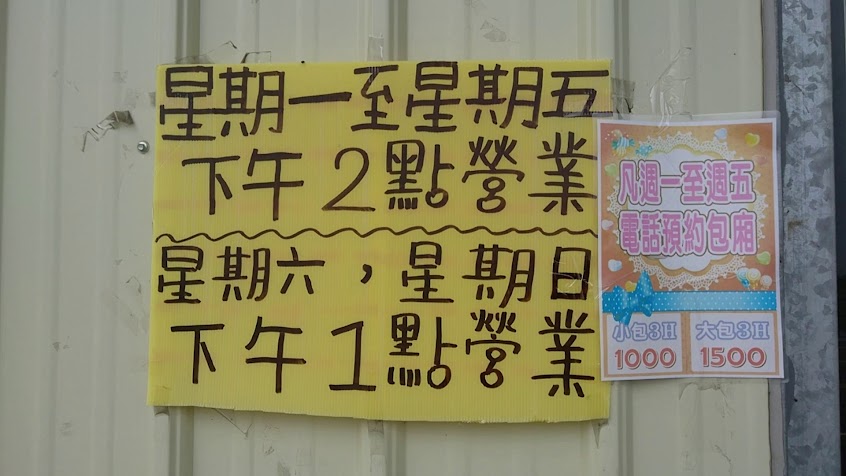 星期一至星期五
下午2點營業
星期六，星期日
下午1點營業
凡週一至週五
電話預約包廂
小包3H
1000
大包3H
1500